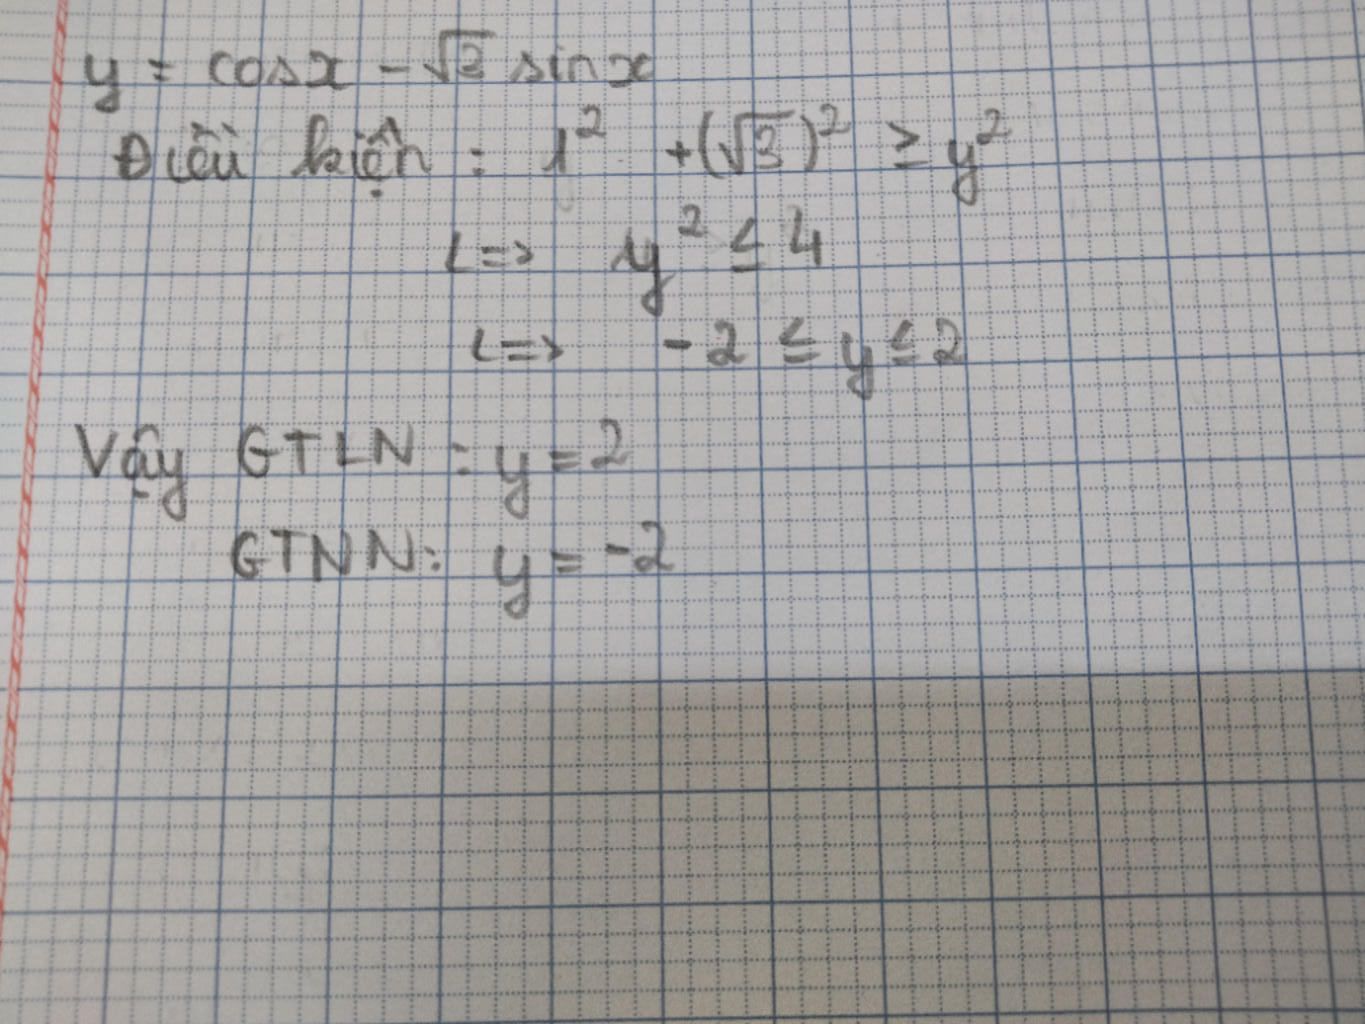 y = cosx - √3 sinx
Điều kiện : 1² + (√3)² ≥ y²
<=> y² ≤ 4
<=> -2 ≤ y ≤ 2
Vậy GTLN : y = 2
GTNN: y = -2